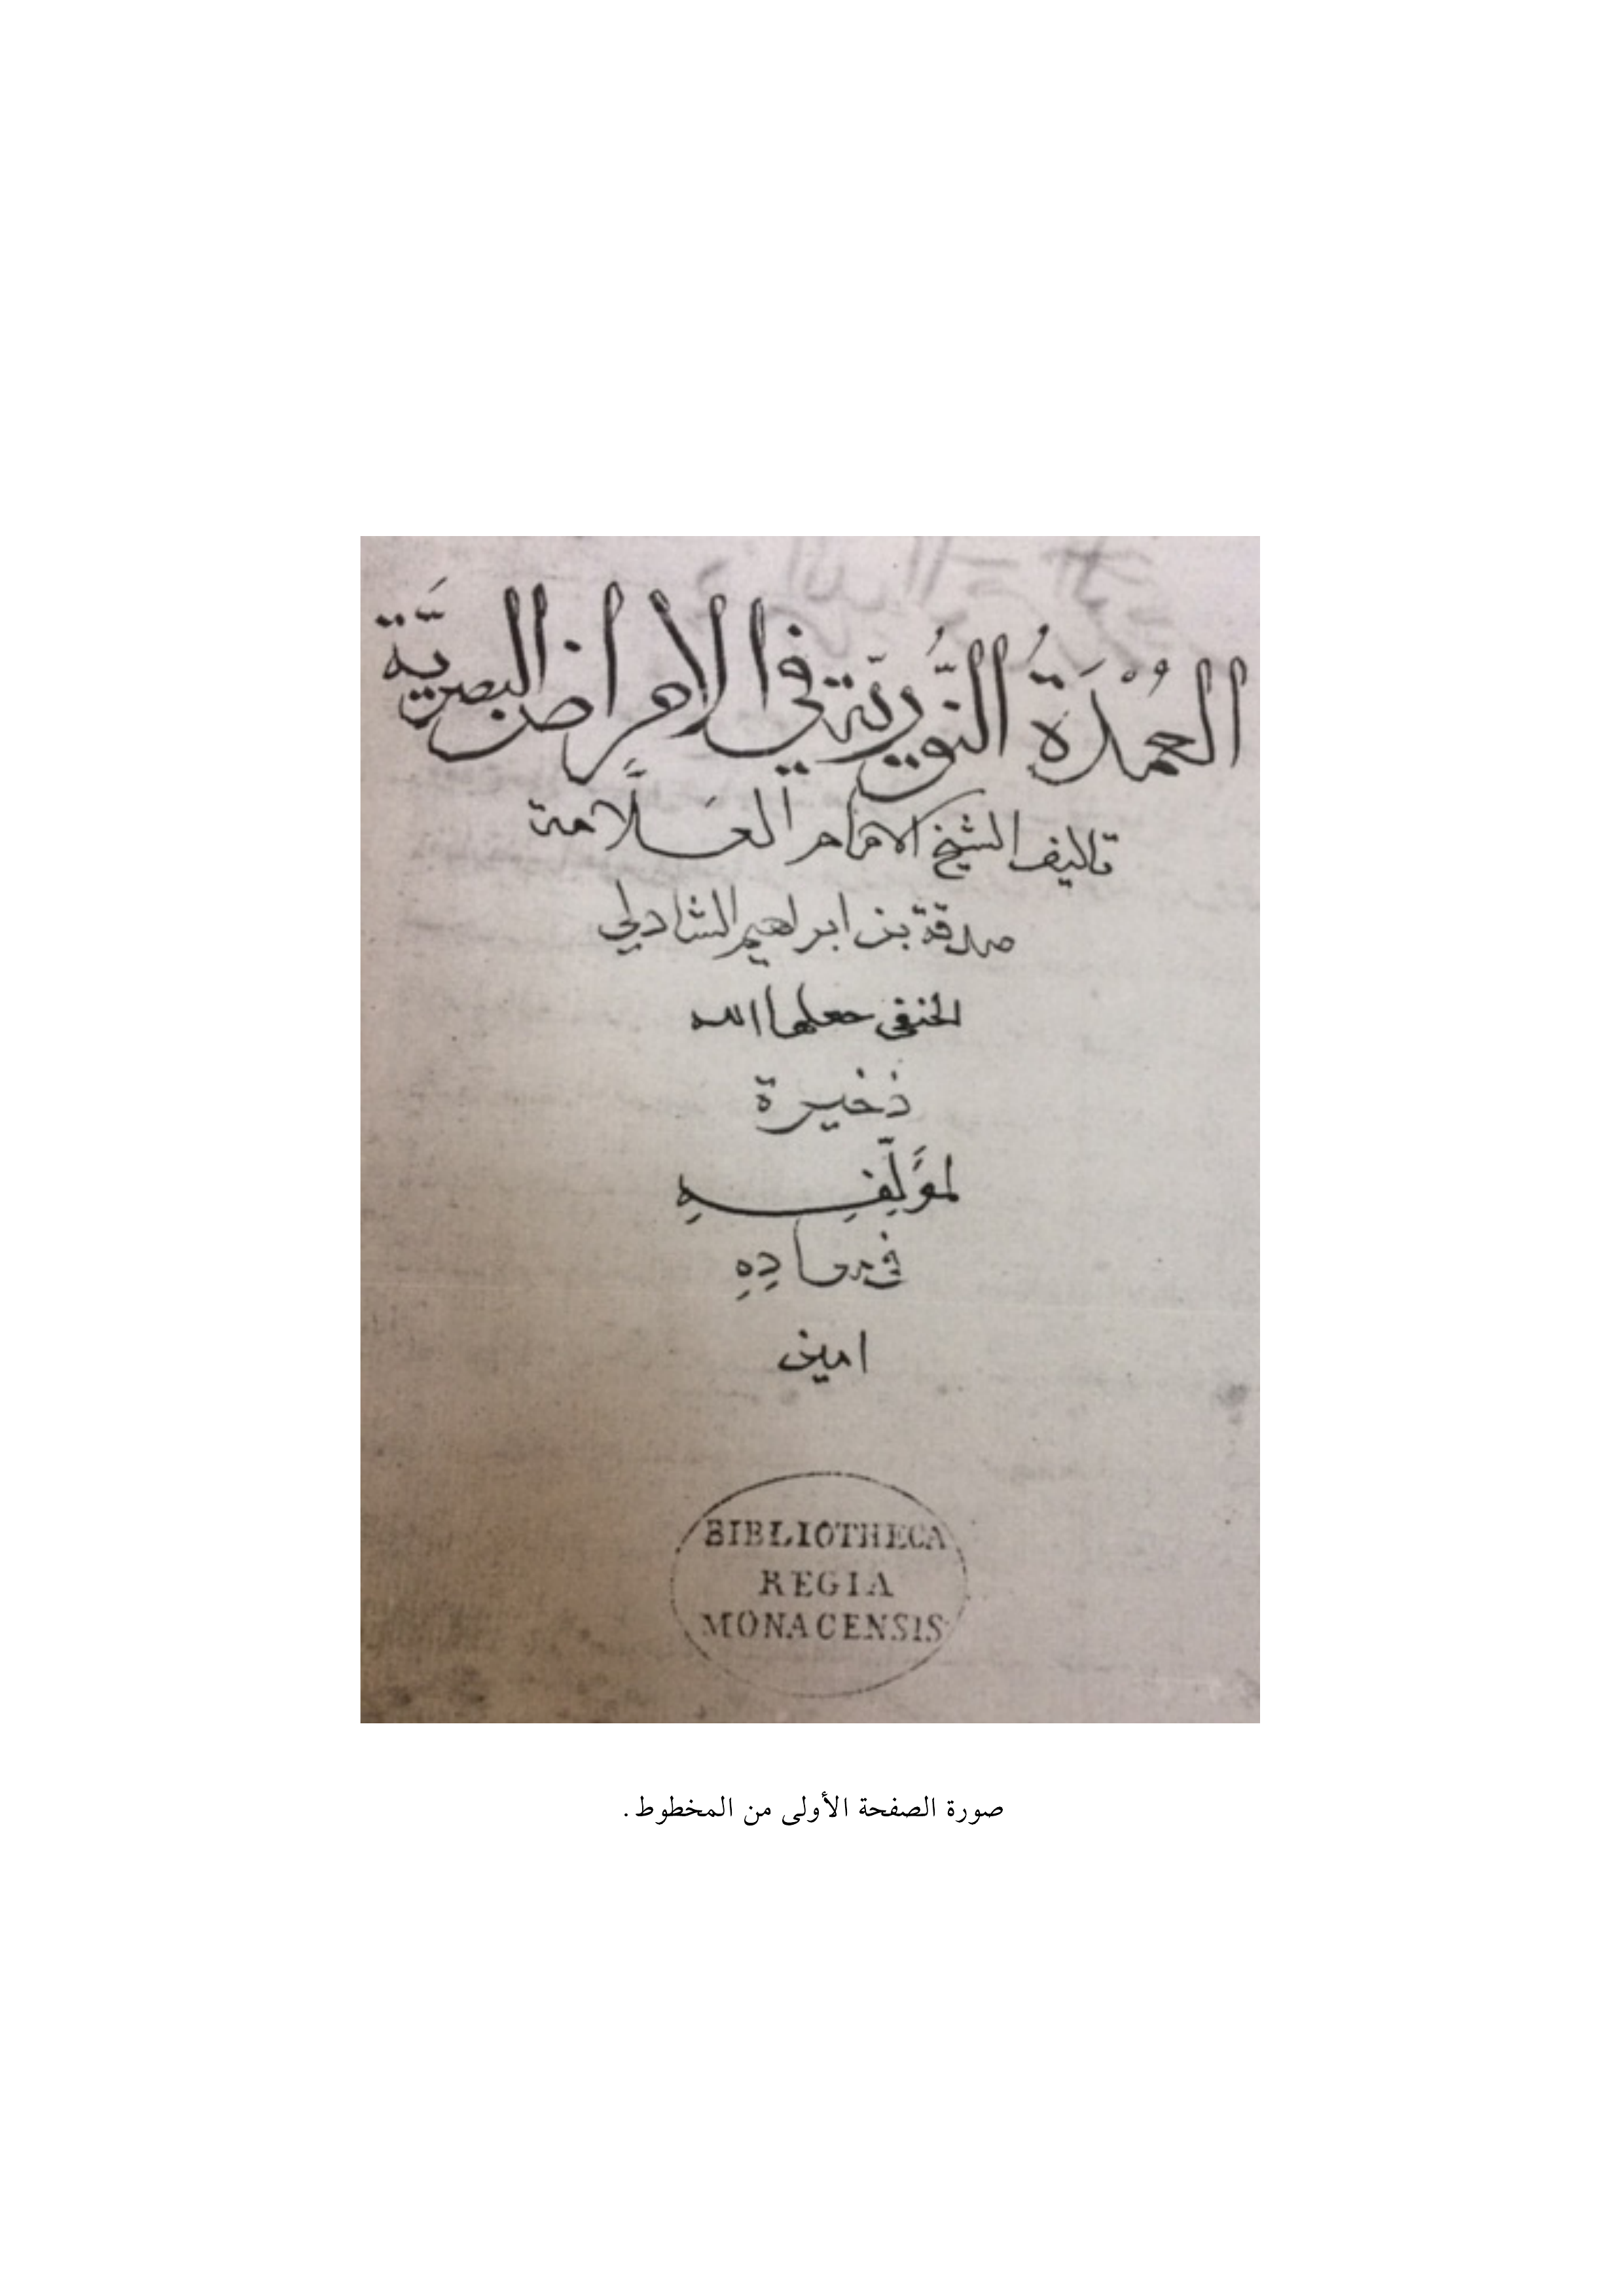 العُمْدَةُ النُّوريّة في الامراض البصريَّة
تاليف الشيخ الامام العَلاَّمة
صدقة بن ابراهيم الشادلي
الحنفي جعلها الله
ذخيرة
لمؤَلِّفِهِ
في معادِهِ
امين
BIBLIOTHECA
REGIA
MONACENSIS
صورة الصفحة الأولى من المخطوط.